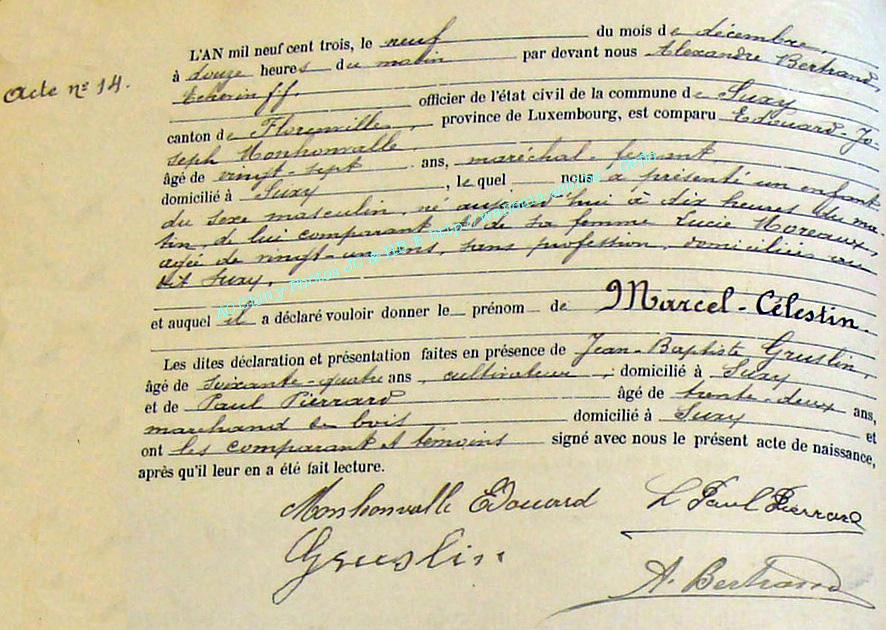 L'AN mil neuf cent trois, le neuf du mois de décembre,
Acte nº 14.
à douze heures du matin par devant nous Alexandre Bertrand,
Echevin ff. officier de l'état civil de la commune de Suxy
canton de Florenville, province de Luxembourg, est comparu Edouard-Jo-
seph Monhonvalle
âgé de vingt-sept ans, maréchal-ferrant
domicilié à Suxy, lequel nous a présenté un enfant
du sexe masculin, né aujourd'hui à dix heures du ma-
tin, de lui comparant et de sa femme Lucie Moreaux,
agée de vingt-un ans, sans profession, domiciliés au
dit Suxy,
et auquel il a déclaré vouloir donner le prénom de Marcel-Célestin.
Les dites déclaration et présentation faites en présence de Jean-Baptiste Gruslin,
âgé de soixante-quatre ans, cultivateur, domicilié à Suxy
et de Paul Pierrard âgé de trente-deux ans,
marchand de bois domicilié à Suxy et
ont les comparant et témoins signé avec nous le présent acte de naissance,
après qu'il leur en a été fait lecture.
Monhonvalle Edouard L Paul Pierrard
Gruslin
A. Bertrand